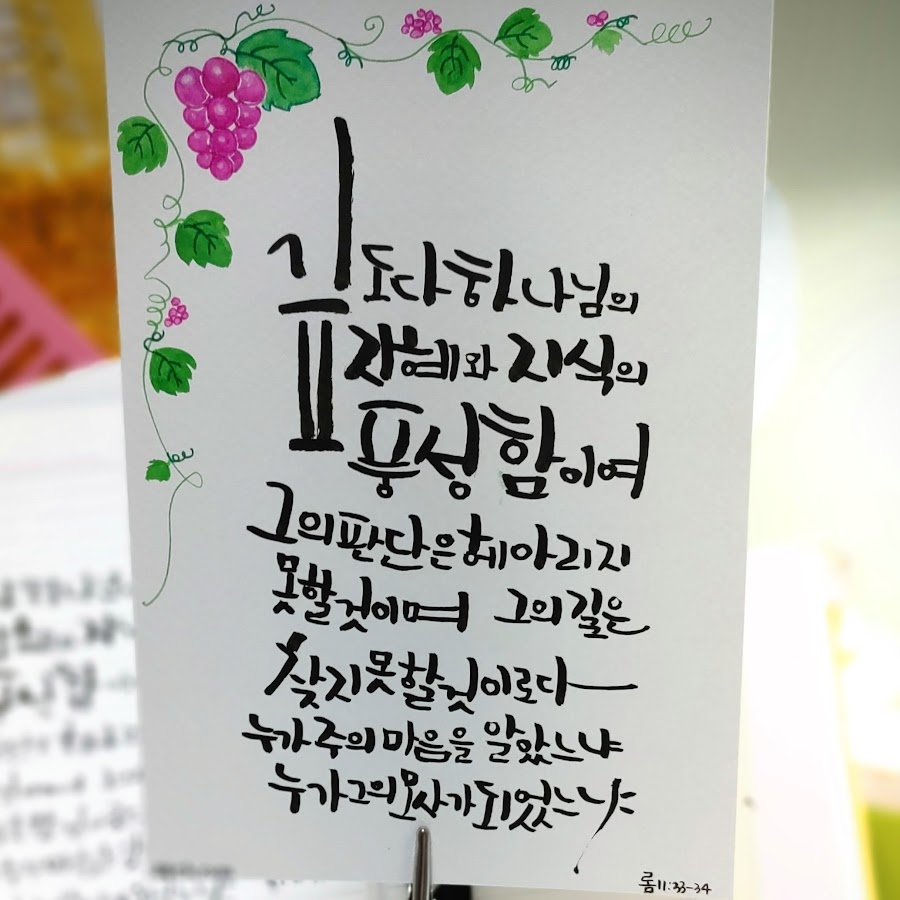 깊도다 하나님의
지혜와 지식의
풍성함이여
그의 판단은 헤아리지
못할 것이며 그의 길은
찾지 못할 것이로다
누가 주의 마음을 알았느냐
누가 그의 모사가 되었느냐
롬11:33-34